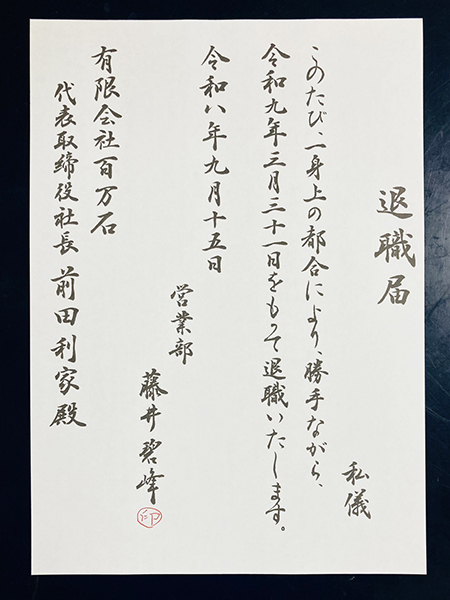 退職届
私儀
このたび、一身上の都合により、勝手ながら、
令和九年三月三十一日をもって退職いたします。
令和八年九月十五日
営業部
藤井碧峰
印
有限会社百万石
代表取締役社長 前田利家殿